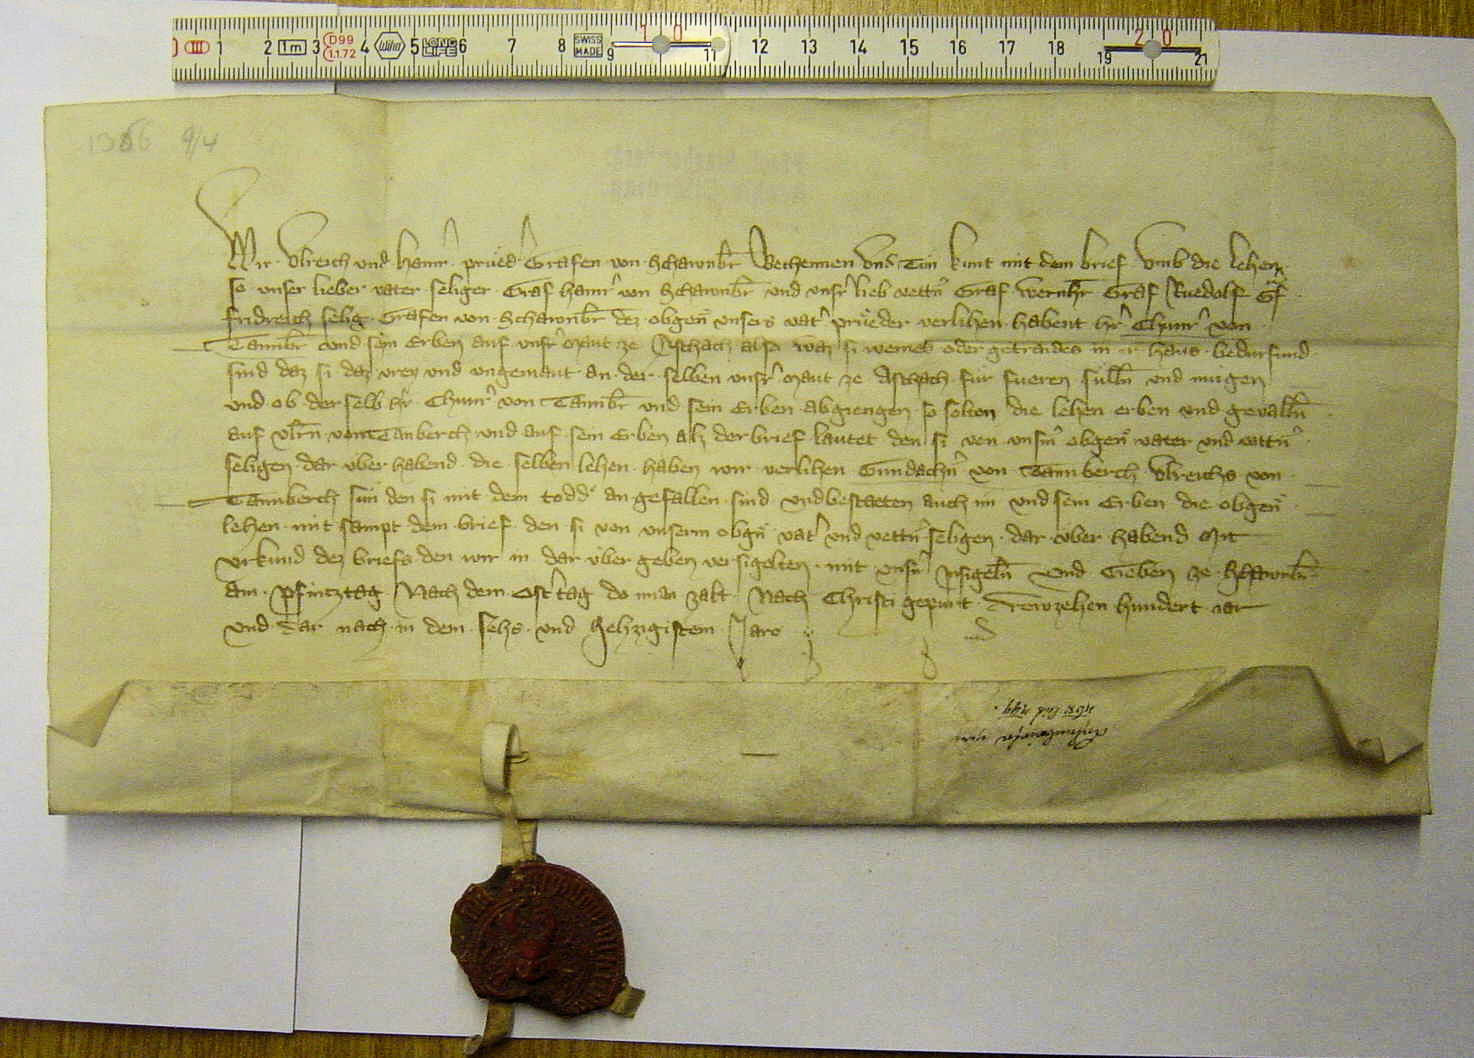 1 2 1m 3 D99 1.1.72 4 wiha 5 LONG LIFE 6 7 8 SWISS MADE 9 10 11 12 13 14 15 16 17 18 19 20 21
9/4
Wir Ulreich und Hainr prüed Grafen von Schawnbr Vechennen und Tun kunt mit dem brief umb die lehen
so unser lieber vater seliger Graf Hainr von Schawnbr und unsr lieb vettn Graf Wernhr Graf Ruedolf Gf
fridreich selig Grafen von Schawnbr dez obgen unsers vatr prüeder verlihen habent hr Chunr von
Tannbr und sein Erben auf unsr maut ze Aschach also waz si weines oder getraides in ir haus bedurfund
sind daz si daz vrey und ungemaut an der selben unsr maut ze Aschach für fueren sulln und mügen
und ob der selb hr Chunr von Tannbr und sein Erben abgiengen so solten die lehen erben und gevalln
auf Ulrn von Tanberch und auf sein Erben alz der brief lautet den si von unsm obgen vater und vettn
seligen dar über habend die selben lehen haben wir verlihen Gundachn von Tannberch Ulreichs von
Tannberch sun den si mit dem todd an gefallen sind und bestaeten auch im und sein Erben die obgen
lehen mit sampt dem brief den si von unserm obgn vatr und vettn seligen dar über habend Mit
urkund dez briefs den wir in dar über geben versigelten mit unsn insigeln Und Geben ze Schawnbr
am Pfintztag Nach dem Ostrtag do man zalt Nach Christi gepurt Drewzehen hundert iar
und dar nach in dem sehs und Sehzigistem Jare